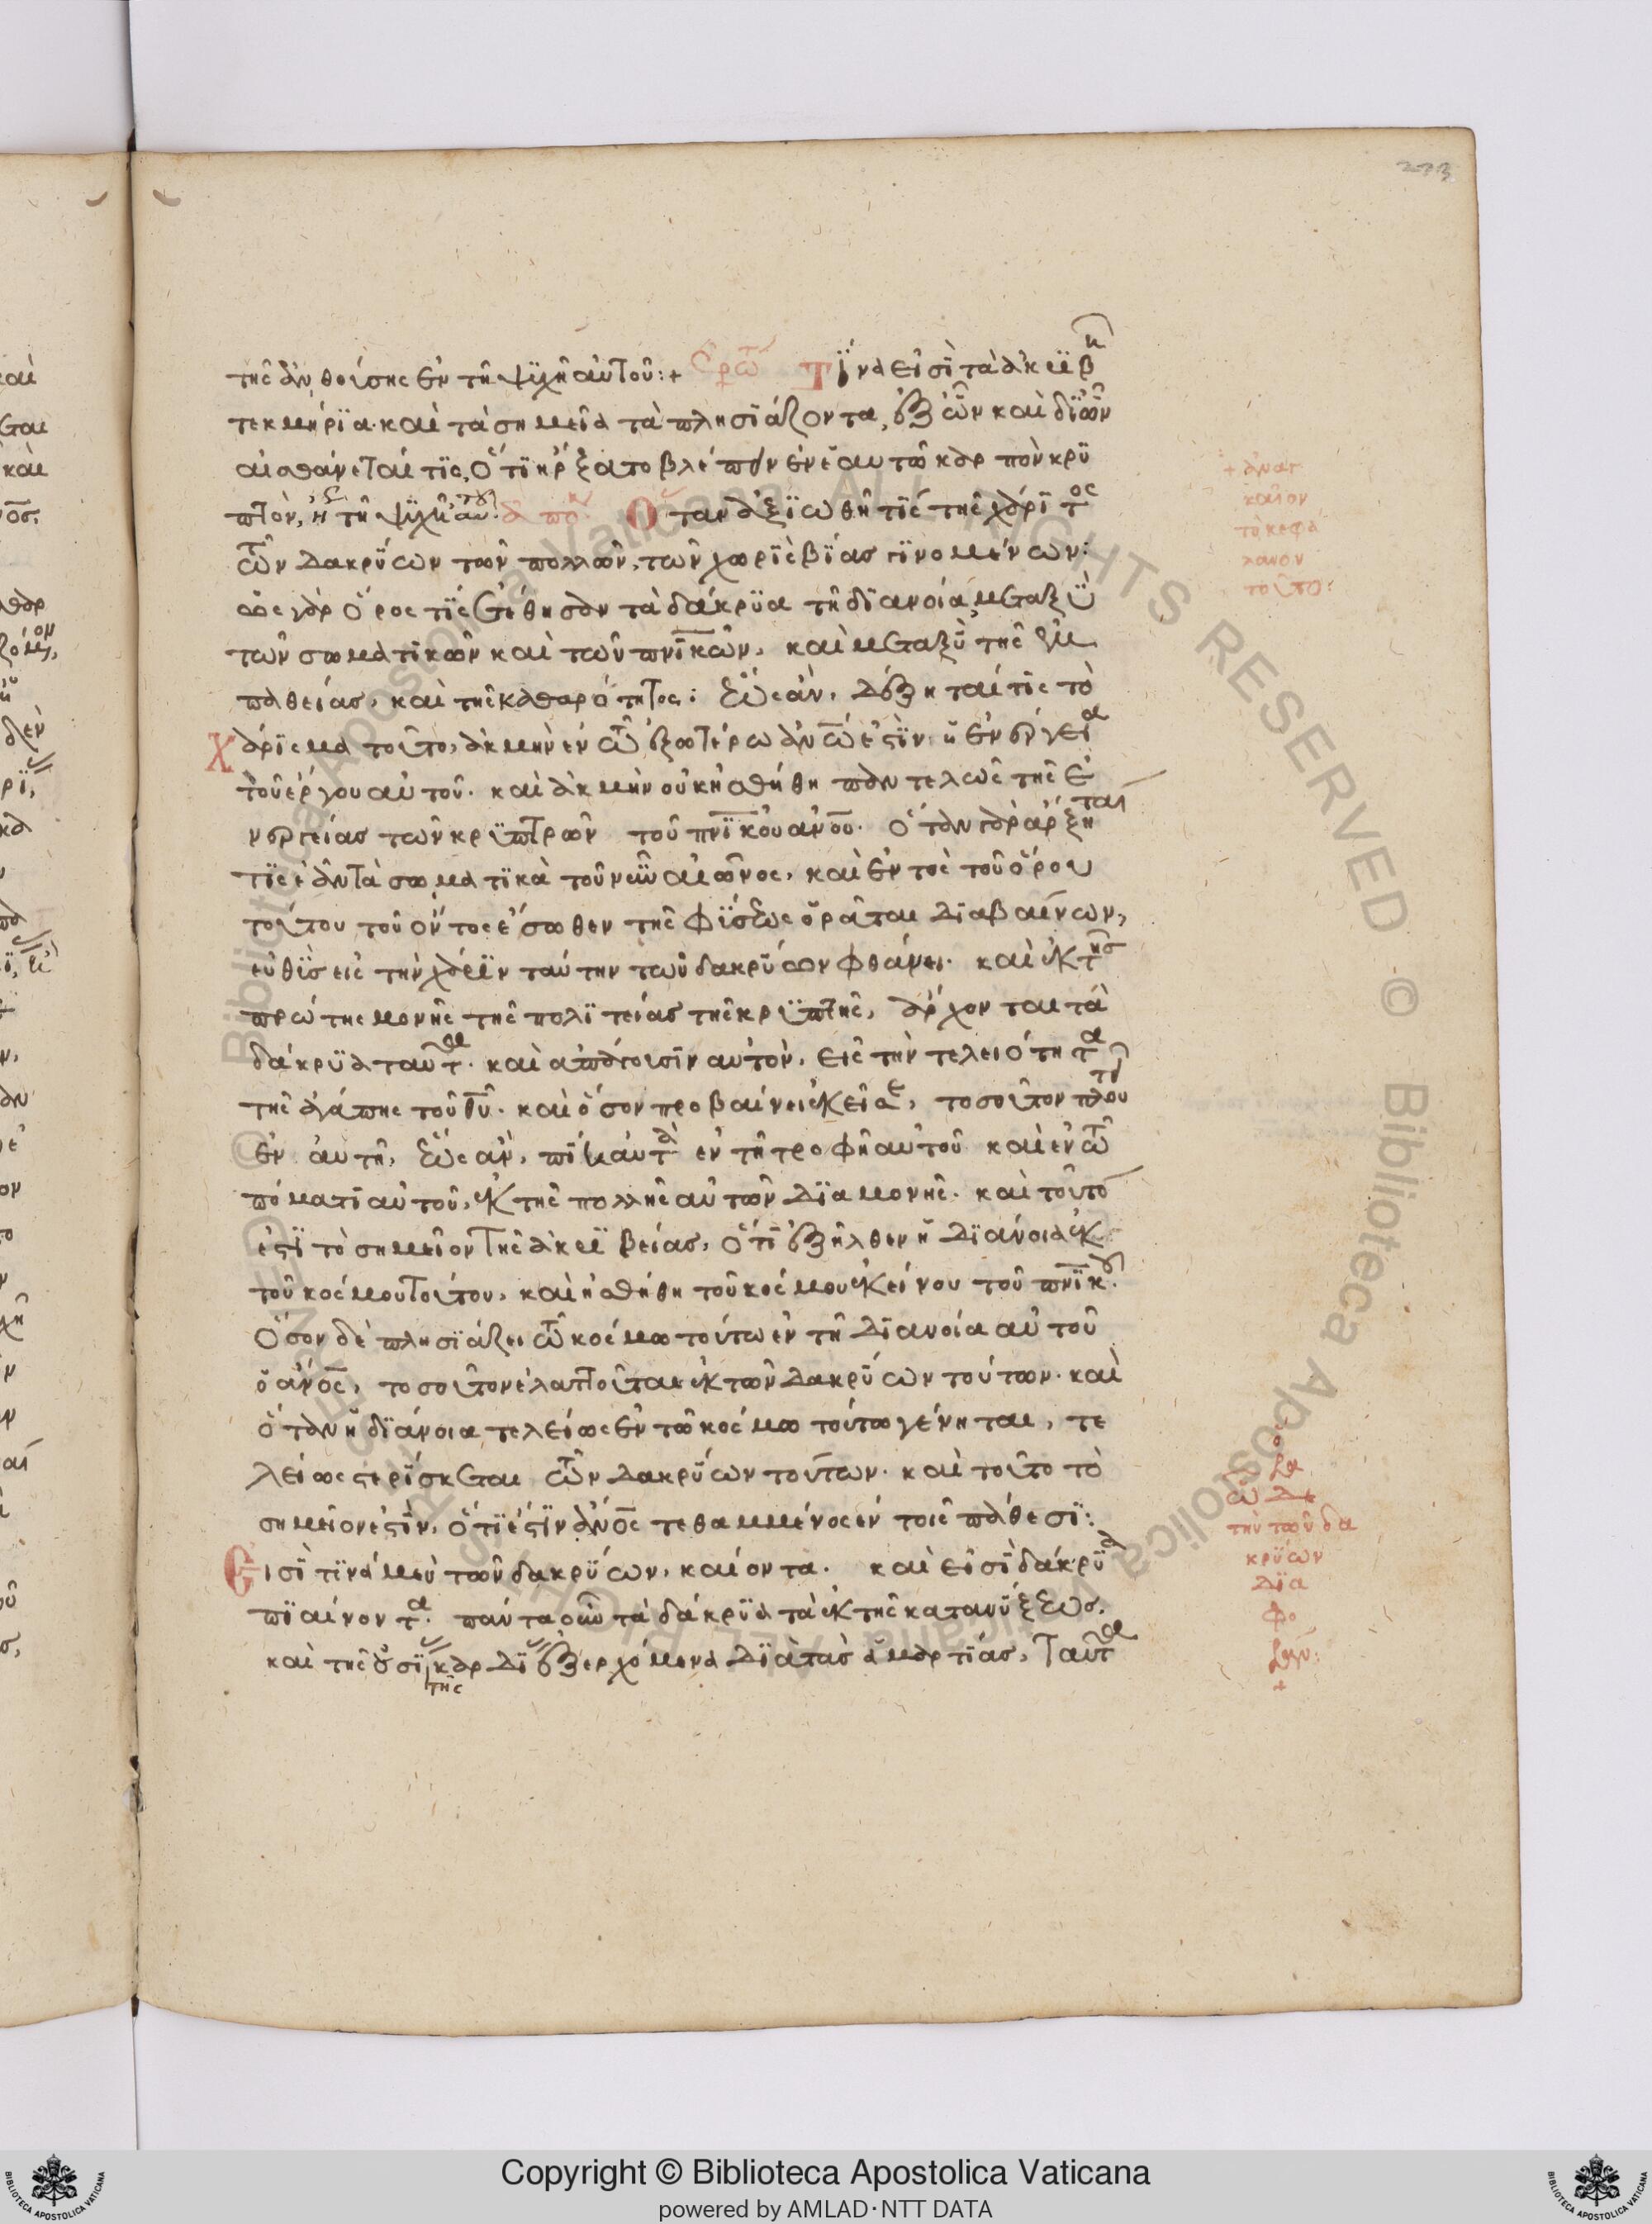 273
τῆς ἀνθούσης ἐν τῇ ψυχῇ αὐτοῦ:+ Ἐρώτ Τίνα εἰσὶ τὰ ἀκριβῆ
τεκμήρια· καὶ τὰ σημεῖα τὰ πλησιάζοντα, ἐξ ὧν καὶ δι ὧν
αἰσθάνεταί τις, ὅτι ἤρξατο βλέπειν ἐν ἑαυτῷ καρπὸν κρυ
πτὸν, ἐν τῇ ψυχῇ αὐτοῦ· ἀπόκ Ὅταν ἀξιωθῇ τὶς τῆς χάριτος
τῶν δακρύων τῶν πολλῶν, τῶν χωρὶς βίας γινομένων:
ὡς γὰρ ὅρος τὶς ἐτέθησαν τὰ δάκρυα τῇ διανοίᾳ μεταξὺ
τῶν σωματικῶν καὶ τῶν πνικῶν, καὶ μεταξὺ τῆς ἐμ
παθείας, καὶ τῆς καθαρότητος: ἕως ἂν, δέξηται τὶς τὸ
χάρισμα τοῦτο, ἀκμὴν ἐν τῷ ἐξωτέρω ἀνῶ ἐστὶν ἡ ἐνέργεια
τοῦ ἔργου αὐτοῦ. καὶ ἀκμὴν οὐκ ἠσθήθη παντελῶς τῆς ἐ
νεργείας τῶν κρυπτῶν τοῦ πνικοῦ ἀνου. ὅταν γὰρ ἄρξηται
τὶς ἐᾶν τὰ σωματικὰ τοῦ νῦν αἰῶνος, καὶ ἐντὸς τοῦ ὅρου
τούτου τοῦ ὄντος ἔσωθεν τῆς φύσεως ὁρᾶται διαβαίνων,
εὐθὺς εἰς τὴν χάριν ταύτην τῶν δακρύων φθάνει. καὶ ἐκ τῆς
πρώτης μονῆς τῆς πολιτείας τῆς κρυπτῆς, ἄρχονται τὰ
δάκρυα ταῦτα. καὶ ἀπάγουσιν αὐτὸν, εἰς τὴν τελειότητα
τῆς ἀγάπης τοῦ θυ. καὶ ὅσον προβαίνει ἐκεῖσε, τοσοῦτον πλουτεῖ
ἐν αὐτῇ, ἕως ἂν, πίῃ αὐτὰ ἐν τῇ τροφῇ αὐτοῦ καὶ ἐν τῷ
πόματι αὐτοῦ, ἐκ τῆς πολλῆς αὐτῶν διαμονῆς. καὶ τοῦτό
ἐστὶ τὸ σημεῖον τῆς ἀκριβείας, ὅτι ἐξῆλθεν ἡ διάνοια ἐκ
τοῦ κόσμου τούτου, καὶ ἠσθήθη τοῦ κόσμου ἐκείνου τοῦ πνικοῦ.
Ὅσον δὲ πλησιάζει τῷ κόσμω τούτω ἐν τῇ διανοίᾳ αὐτοῦ
ὁ ἄνος, τοσοῦτον ἐλαττοῦται ἐκ τῶν δακρύων τούτων. καὶ
ὅταν ἡ διάνοια τελείως ἐν τῷ κόσμω τούτω γένηται, τε
λείως στερίσκεται τῶν δακρύων τούτων. καὶ τοῦτο τὸ
σημεῖον ἐστὶν, ὅτι ἐστὶν ἄνος τεθαμμένος ἐν τοῖς πάθεσι:
Εἰσὶ τινὰ μὲν τῶν δακρύων, καίοντα. καὶ εἰσὶ δάκρυα
πιαίνοντα. πάντα οὖν τὰ δάκρυα τὰ ἐκ τῆς κατανύξεως.
καὶ τῆς οὐσίας τῆς καρδίας ἐξερχόμενα διὰ τὰς ἁμαρτίας, ταῦτα
+ ἀναγ
καῖον
τὸ κεφά
λαιον
τοῦτο:
τὴν τῶν δα
κρύων
δια
φο
ράν:
+
Copyright © Biblioteca Apostolica Vaticana
powered by AMLAD·NTT DATA